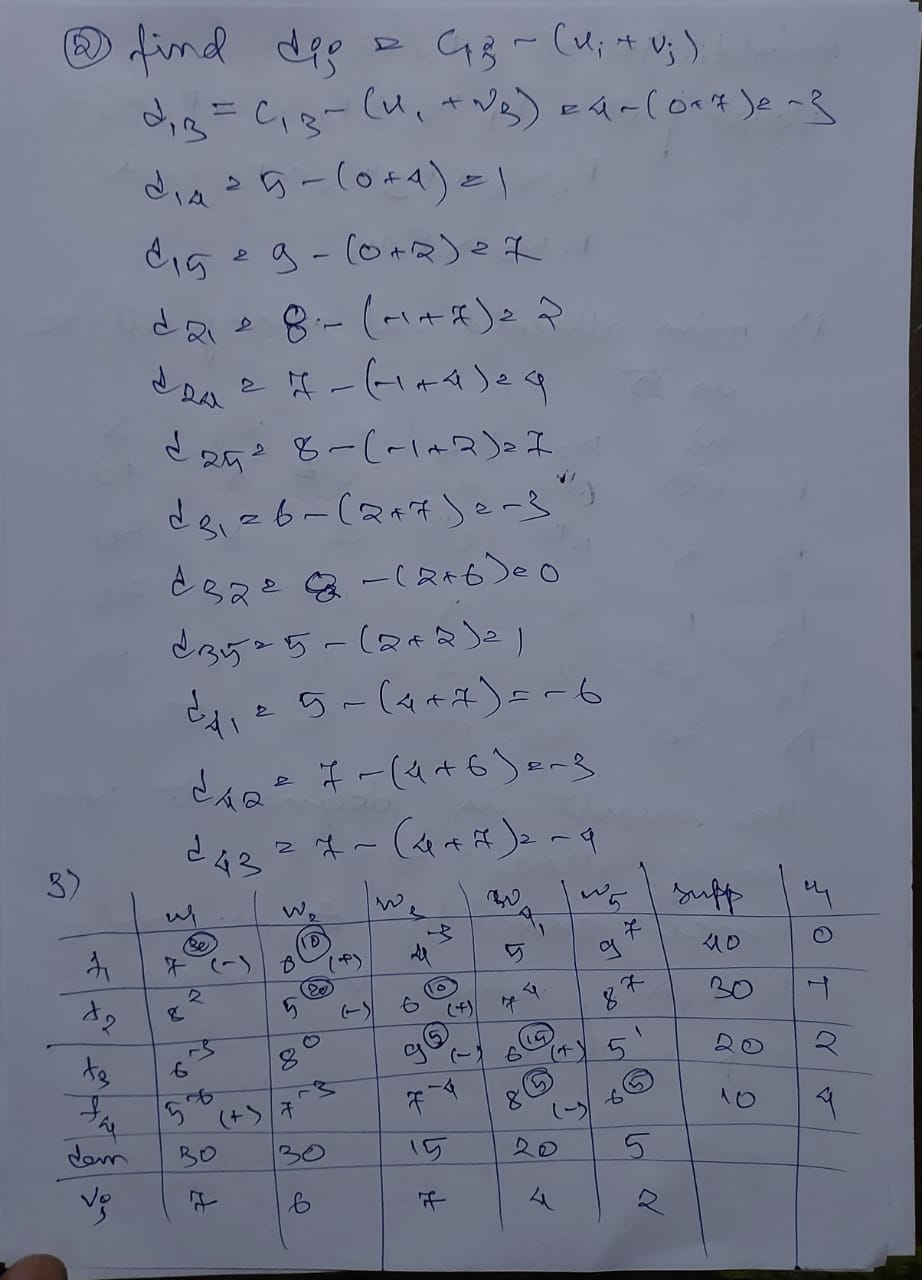 ② find dij = Cij - (ui + vj)
d13 = C13 - (u1 + v3) = 4 - (0+7) = -3
d14 = 5 - (0+4) = 1
d15 = 9 - (0+2) = 7
d21 = 8 - (-1+7) = 2
d24 = 7 - (-1+4) = 4
d25 = 8 - (-1+2) = 7
d31 = 6 - (2+7) = -3
d32 = 8 - (2+6) = 0
d35 = 5 - (2+2) = 1
d41 = 5 - (4+7) = -6
d42 = 7 - (4+6) = -3
d43 = 7 - (4+7) = -4
3)
w1 w2 w3 w4 w5 supp ui
f1 7 30 (-) 8 10 (+) 4 -3 5 1 9 7 40 0
f2 8 2 5 20 (-) 6 10 (+) 7 4 8 7 30 -1
f3 6 -3 8 0 9 5 (-) 6 15 (+) 5 1 20 2
f4 5 -6 (+) 7 -3 7 -4 8 5 (-) 6 5 10 4
dem 30 30 15 20 5
vj 7 6 7 4 2